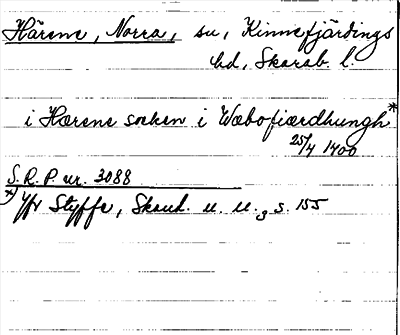 Härene, Norra, sn, Kinnefjärdings
hd, Skarab. l.
i Hærene socken i Wæbofiærdhungh*
25/4 1400
S.R.P. nr. 3088
*) Jfr Styffe, Skand. u. u.3 s. 155